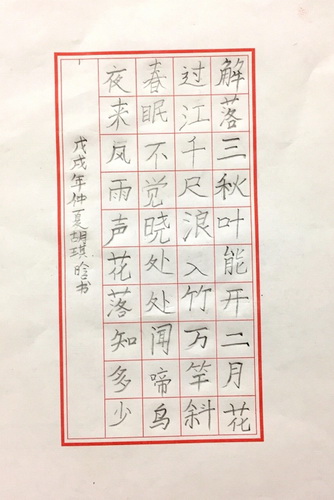 解落三秋叶能开二月花
过江千尺浪入竹万竿斜
春眠不觉晓处处闻啼鸟
夜来风雨声花落知多少
戊戌年仲夏胡琪晗书